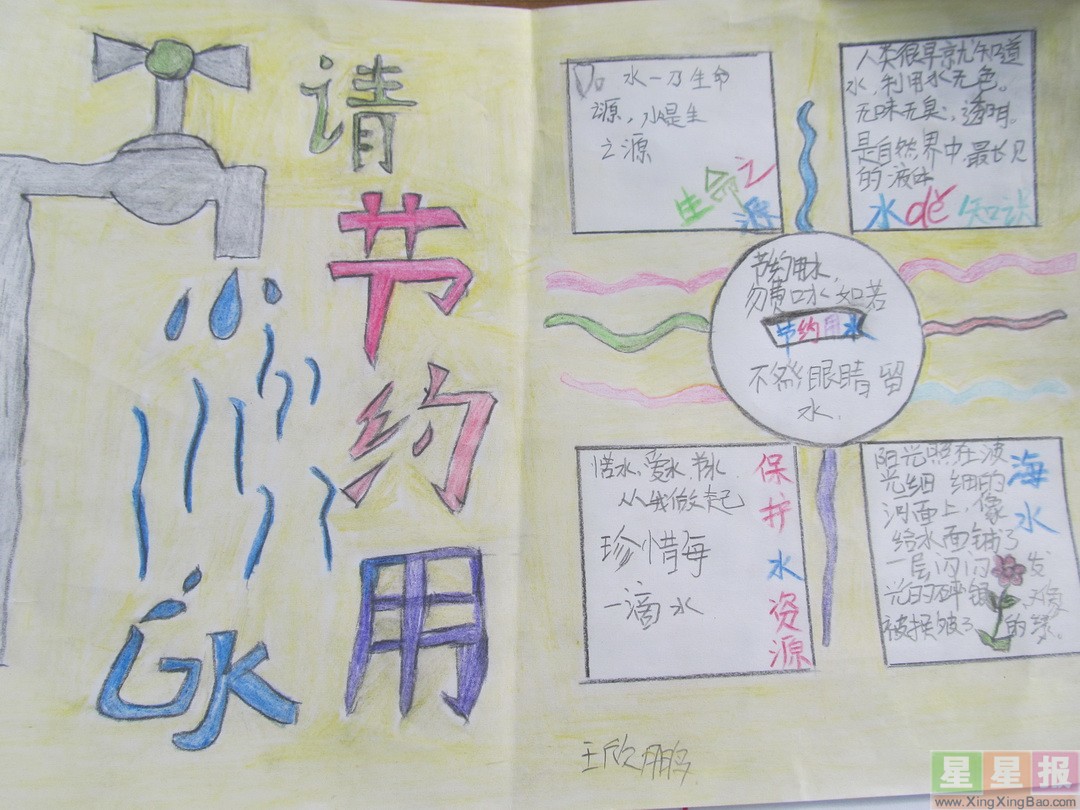 请
节
约
用
水
水一乃生命
源，水是生
之源
生命之
源
人类很早就知道
水，利用水无色。
无味无臭，透明。
是自然界中最长见
的液体
水 de 知识
节约用水，
勿费口水如若
节约用水
不然眼睛留
水.
惜水、爱水、节水
从我做起
珍惜每
一滴水
保护水资源
阳光照在波
光细 细的
河面上，像
给水面铺了
一层闪闪发
光的碎银，像
被揉皱了的绿。
海水
王欣鹏
星星报
www.XingXingBao.com